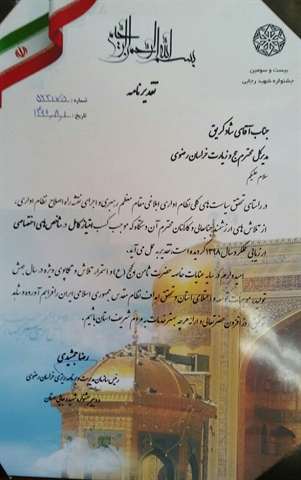 بسم الله الرحمن الرحیم
بیست و سومین
جشنواره شهید رجایی
تقدیرنامه
شماره :
تاریخ :
جناب آقای شادکریق
مدیرکل محترم حج و زیارت خراسان رضوی
سلام علیکم
در راستای تحقق سیاست‌های کلی نظام اداری ابلاغی مقام معظم رهبری و اجرای نقشه راه اصلاح نظام اداری،
از تلاش‌های ارزشمند جنابعالی و کارکنان محترم آن دستگاه که موجب کسب امتیاز کامل در شاخص‌های اختصاصی
ارزیابی عملکرد سال ۱۳۹۸ گردیده است، تقدیر بعمل می‌آید.
امیدوارم در سایه عنایات خاصه حضرت ثامن الحجج (ع) و استمرار تلاش و تکاپوی ویژه در سال جهش
تولید، موجبات توسعه و اعتلای استان و تحقق اهداف نظام مقدس جمهوری اسلامی ایران را فراهم آورده و شاهد
روز افزون حضرتعالی و ارائه هر چه بهتر خدمات به مردم شریف استان باشیم.
رضا جمشیدی
رئیس سازمان مدیریت و برنامه ریزی خراسان رضوی
و دبیر جشنواره شهید رجایی استان